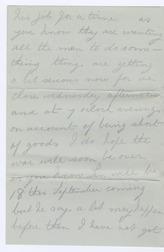 his job for a time as
you know they are wanting
all the men to do some-
thing thing. are getting
a bit scarce now for we
close Wednesday afternoon
and at 7 o'clock evenings
on account of being short
of goods I do hope the
war will soon be over
as you know Jn will be
18 this September coming
but he says a lot may happen
before then I have not got